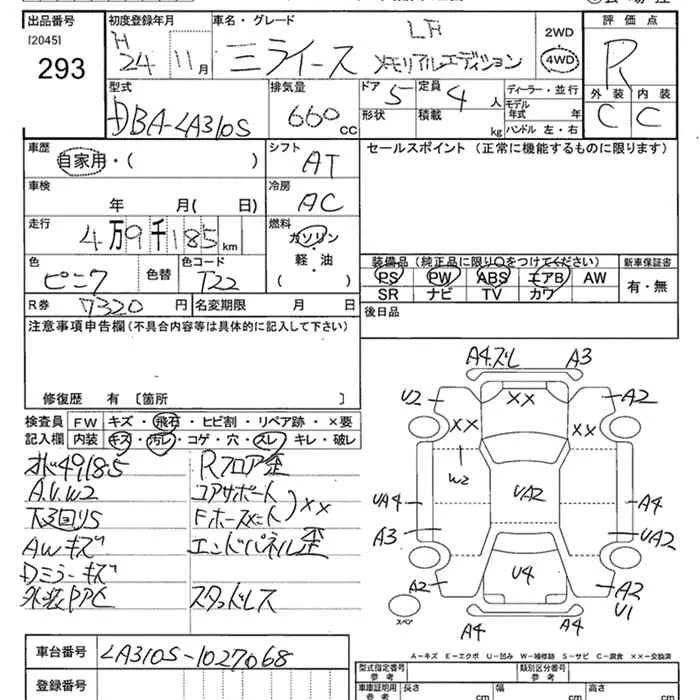 出品番号 初度登録年月 車名・グレード 評価点
[2045] H LF 2WD
293 24 11月 ミライース メモリアルエディション 4WD R
外装 内装
型式 排気量 ドア 5 定員 4人 ディーラー・並行 C C
DBA-LA310S 660cc 形状 積載 kg モデル年式 年 ハンドル 左・右
車歴 シフト セールスポイント (正常に機能するものに限ります)
自家用・( ) AT
車検 冷房
年 月( 日) AC
走行 燃料
4万9千185km ガソリン・軽・油( )
装備品 (純正品に限り○をつけてください) 新車保証書
色 ピンク 色替 色コード T22 PS PW ABS エアB AW 有・無
SR ナビ TV カワ
R券 7320円 名変期限 月 日 後日品
注意事項申告欄(不具合内容等は具体的に記入して下さい)
修復歴 有 〔箇所 〕
検査員 FW キズ・飛石・ヒビ割・リペア跡・×要
記入欄 内装 キズ・汚レ・コゲ・穴・スレ・キレ・破レ
オド49185 Rフロア歪
A.U.W2 コアサポート
下3回りS XX
AWキズ エンドパネル歪
Dミラーキズ
外装PPC スタッドレス
A4.ズレ A3
U2 XX A2
XX XX
W2
UA4 UA2 A4
A3 UA2
A2 U4 A2
U1
スペア A4 A4
A-キズ E-エクボ U-凹み W-補修跡 S-サビ C-腐食 XX-交換済
車台番号 LA310S-1027068
型式指定番号 参考 類別区分番号 参考
登録番号
車庫証明用 参考 長さ cm 幅 cm 高さ cm